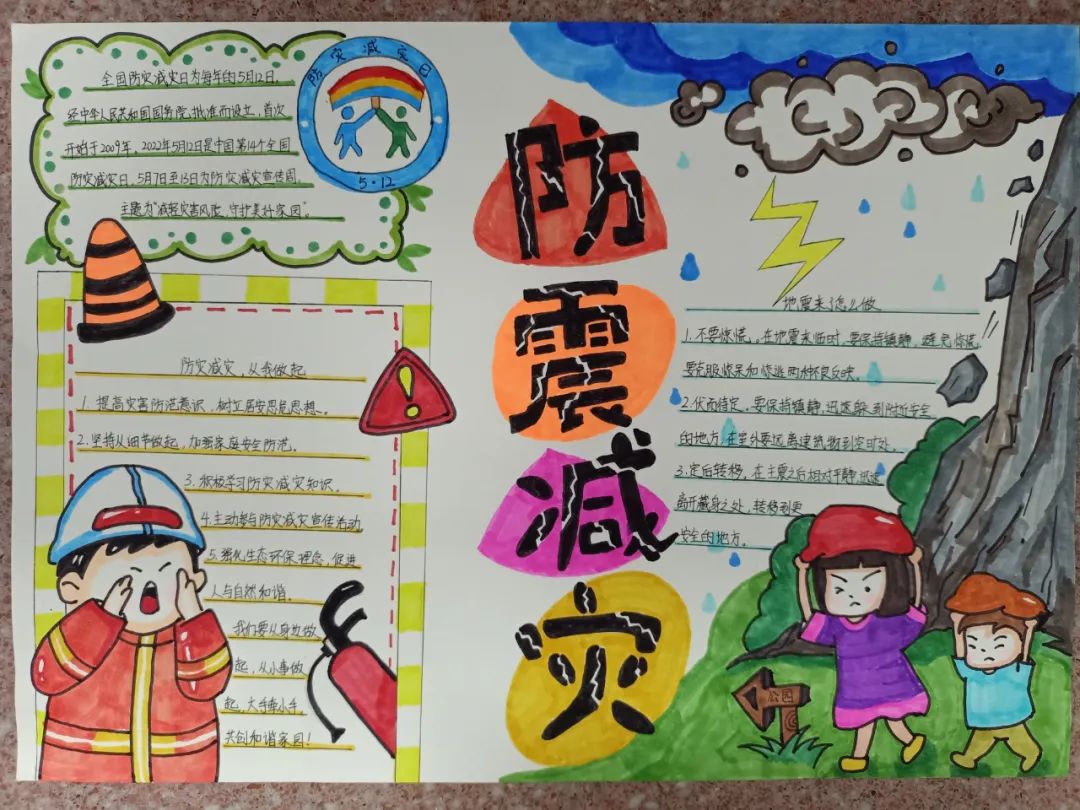 全国防灾减灾日为每年的5月12日,
经中华人民共和国国务院批准而设立,首次
开始于2009年,2022年5月12日是中国第14个全国
防灾减灾日,5月7日至13日为防灾减灾宣传周,
主题为“减轻灾害风险,守护美好家园”。
防灾减灾日
5·12
防震减灾
防灾减灾,从我做起
1.提高灾害防范意识,树立居安思危思想。
2.坚持从细节做起,加强家庭安全防范。
3.积极学习防灾减灾知识。
4.主动参与防灾减灾宣传活动
5.强化生态环保理念,促进
人与自然和谐。
我们要从身边做
起,从小事做
起,大手牵小手,
共创和谐家园!
地震来了怎么做
1.不要惊慌,在地震来临时,要保持镇静,避免惊慌,
要克服惊呆和惊逃两种不良反映。
2.伏而待定,要保持镇静,迅速躲到附近安全
的地方,在室外要远离建筑物到空旷处。
3.定后转移,在主震之后相对平静,迅速
离开藏身之处,转移到更
安全的地方。
公园